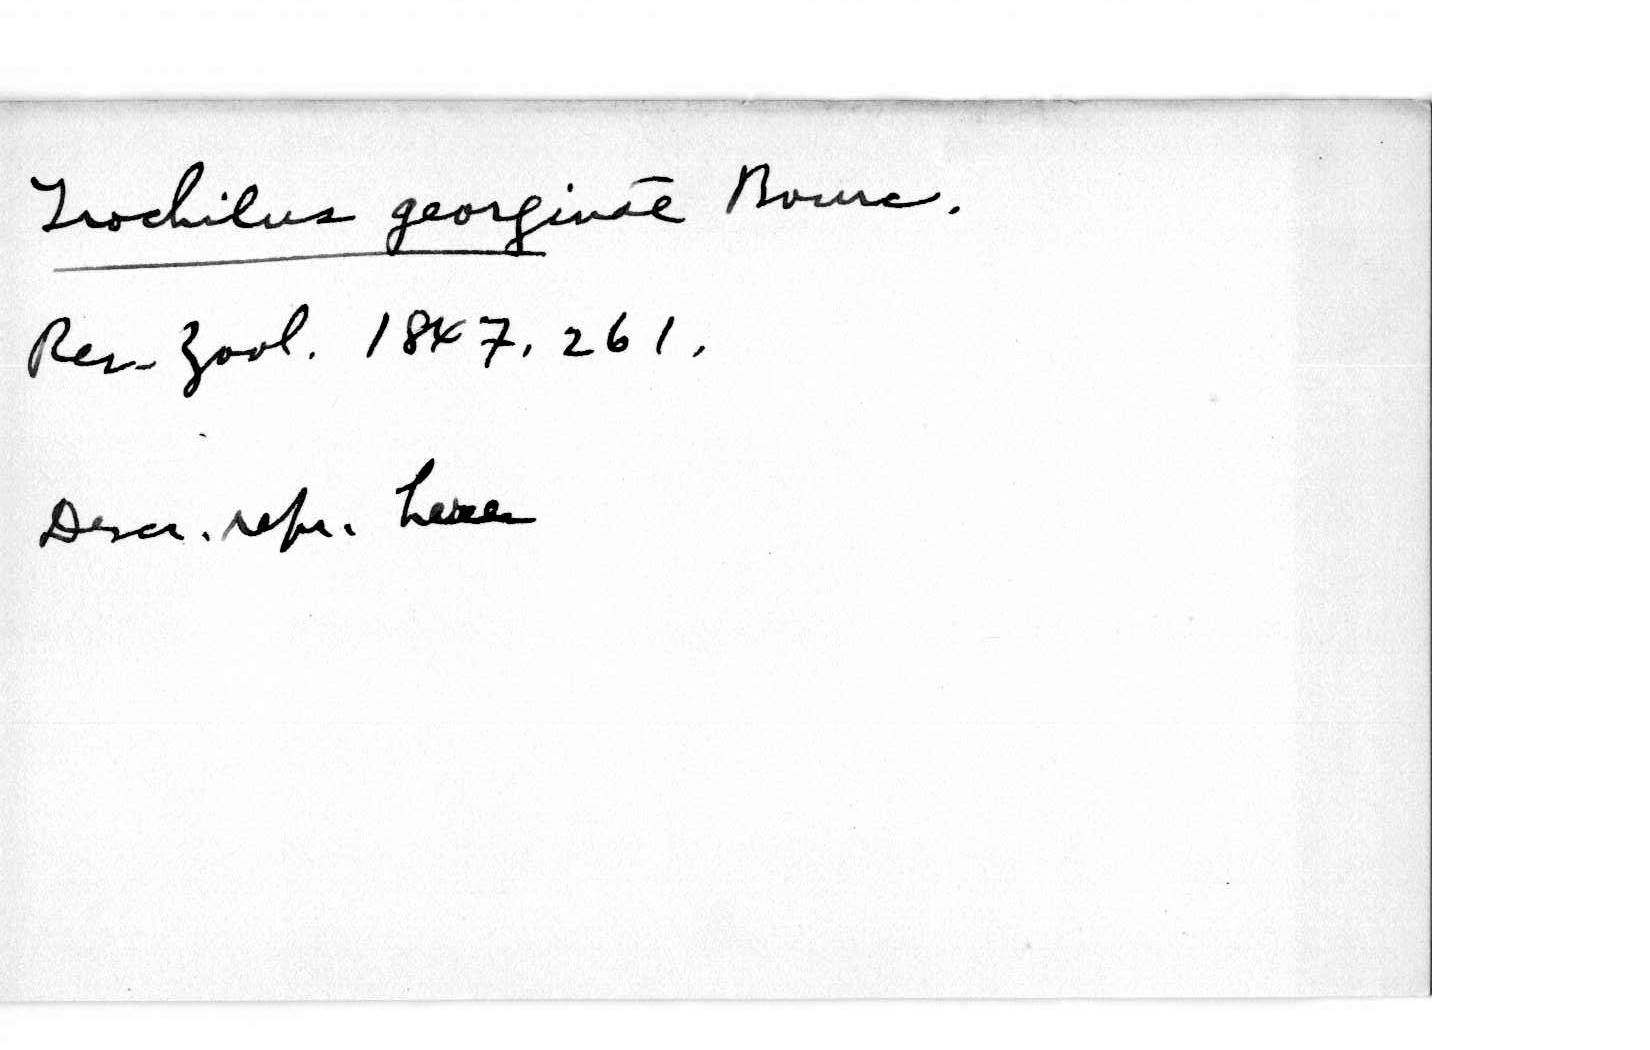 Trochilus georginae Bourc.
Rev. Zool. 1847, 261.
Descr. repr. here